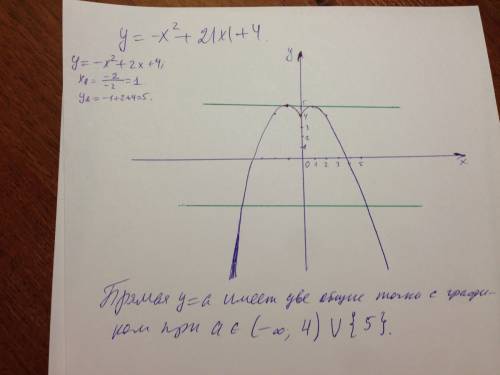 y = -x² + 2|x| + 4.
y = -x² + 2x + 4,
x₀ = -2/-2 = 1
y₀ = -1+2+4=5.
y
5
4
3
2
1
0 1 2 3 4 5
x
Прямая y=a имеет две общие точки с графи-
ком при a ∈ (-∞, 4) ∪ {5}.